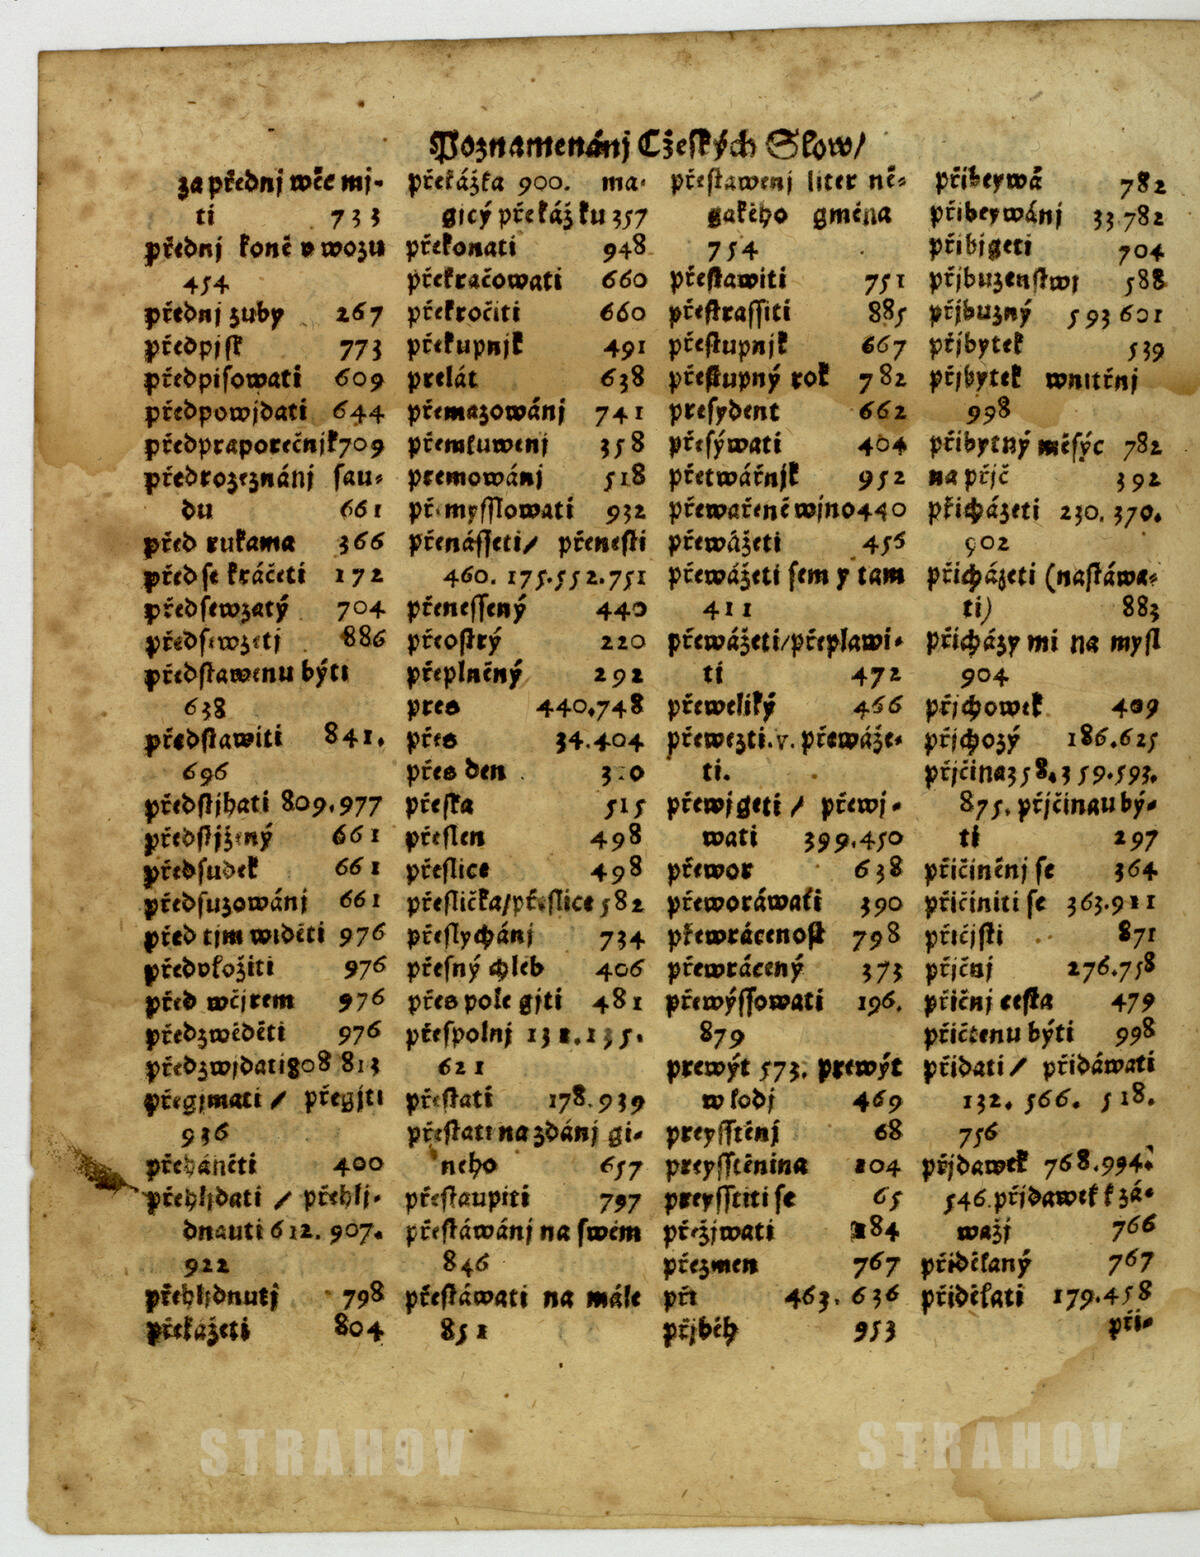 Poznamenánj Cžeských Slow/
za přednj wěc mj-
ti 733
přednj koně v wozu
454
přednj zuby 267
předpjsk 773
předpisowati 609
předpowjdati 644
předpraporečnjk 709
předrozeznánj sau-
du 661
před rukama 366
před se kráčeti 172
předsewzatý 704
předsewzetj 886
představenu býti
638
představiti 841.
696
předstjhati 809.977
předstjžený 661
předsudek 661
předsuzowánj 661
před tjm widěti 976
předvložiti 976
před wčjrem 976
předzwěděti 976
předzwjdati 808 813
přegjmati / přegjti
936
přeháněti 400
přehljdati / přehlj-
dnauti 612. 907.
922
přehljdnutj 798
překažeti 804
překážka 900. ma-
gicý překážku 357
překonati 948
překračowati 660
překročiti 660
překupnjk 491
prelát 638
přemazowánj 741
přemluwenj 358
premowánj 518
přemysslowati 932
přenásseti / přenesti
460. 175.552.751
přenessený 440
přeostrý 220
přeplněný 292
pres 440.748
přes 34.404
přes den
přeska 515
přeslen 498
přeslice 498
přeslička/přeslice 582
přeslychánj 734
přesný chléb 406
přes pole gjti 481
přespolnj 131.135.
621
přestati 178.939
přestati na zdánj gi-
neho 657
přestaupiti 797
přestáwánj na swém
846
přestáwati na mále
851
přestawenj liter ně-
gakého gména
754
přestawiti 751
přestrassiti 885
přestupnjk 667
přestupný rok 782
presydent 662
přesýwati 404
přetwářnjk 952
přewařené wjno 440
přewážeti 456
přewážeti sem y tam
411
přewážeti/přeplawi-
ti 472
přeweliký 466
přewezti.v. přewáže-
ti.
přewjgeti / přewj-
wati 399.450
přewor 638
přeworáwati 390
přewrácenost 798
přewrácený 373
přewýssowati 196.
879
prewýt 573. prewýt
w lodj 469
preysstěnj 68
preysstěnina 104
preysstiti se 65
přežjwati 184
přezmen 767
při 463. 636
přjběh 953
přibeywá 782
přibeywánj 33.782
přibjgeti 704
přjbuzenstwj 588
přjbuzný 593 601
přjbytek 539
přjbytek wnitřnj
998
přibytný měsýc 782
na přjč 392
přicházeti 230. 370.
902
přicházeti (nastáwa-
ti) 883
přicházy mi na mysl
904
přjchowek 409
přjchozý 186.625
přjčina 358.359.593.
875. přjčinau bý-
ti 297
přičiněnj se 364
přičiniti se 363.911
přičjsti 871
přjčnj 276.758
přičnj cesta 479
přičtenu býti 998
přidati / přidáwati
132. 566. 518.
756
přjdawek 768.994.
546. přjdawek k zá-
ważj 766
přidělaný 767
přidělati 179.458
při-
STRAHOV
STRAHOV